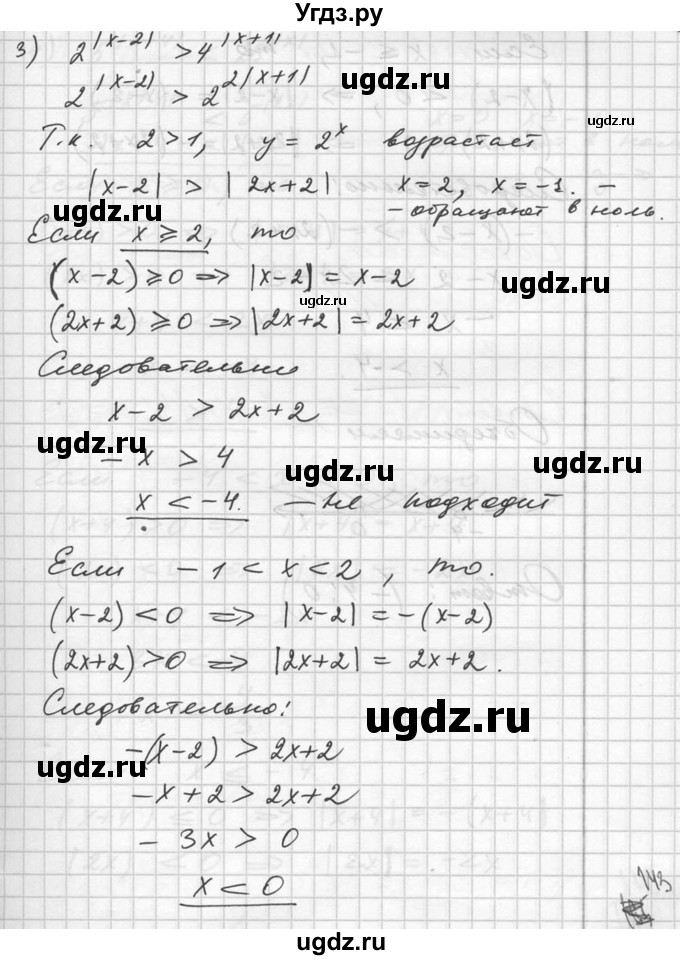 Угдз.ру
3) 2^|x-2| > 4^|x+1|
ugdz.ru
2^|x-2| > 2^2|x+1|
ugdz.ru
Т.к. 2 > 1, y = 2^x возрастает
|x-2| > |2x+2| x = 2, x = -1. -
ugdz.ru
- обращают в ноль.
Если x ⩾ 2, то
(x-2) ⩾ 0 => |x-2| = x-2
ugdz.ru
ugdz.ru
(2x+2) ⩾ 0 => |2x+2| = 2x+2
Следовательно
x-2 > 2x+2
ugdz.ru
- x > 4
ugdz.ru
ugdz.ru
x < -4. - не подходит
Если -1 < x < 2, то.
(x-2) < 0 => |x-2| = -(x-2)
(2x+2) > 0 => |2x+2| = 2x+2.
Следовательно:
ugdz.ru
-(x-2) > 2x+2
ugdz.ru
-x+2 > 2x+2
- 3x > 0
x < 0
143
ugdz.ru